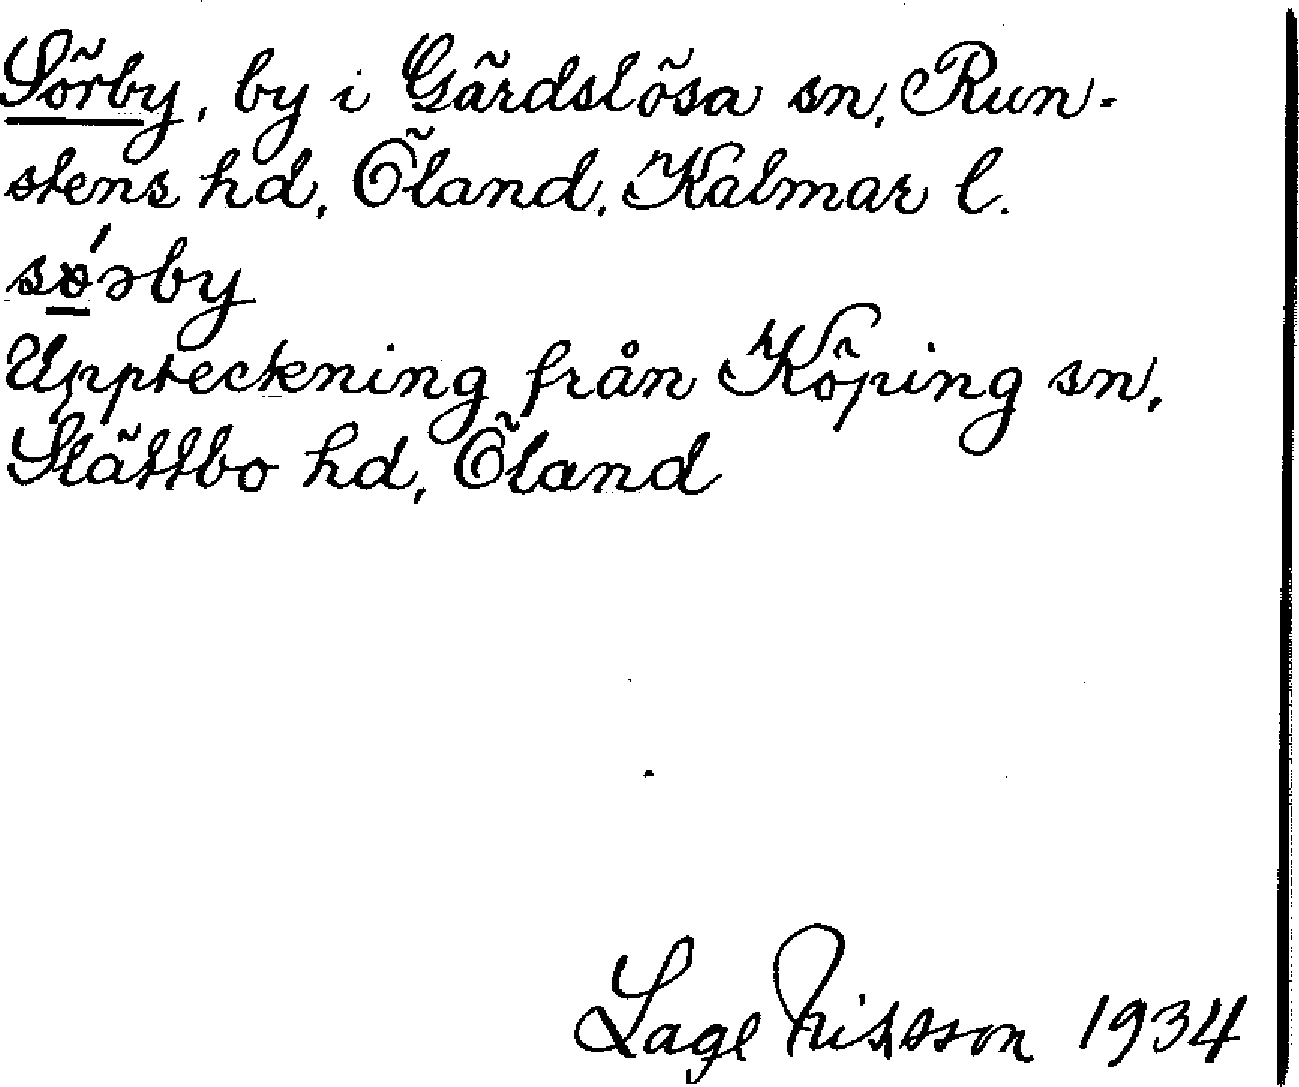 Sörby, by i Gärdslösa sn, Run-
stens hd, Öland, Kalmar l.
Uppteckning från Köping sn,
Slättbo hd, Öland
Lage Nilsson 1934